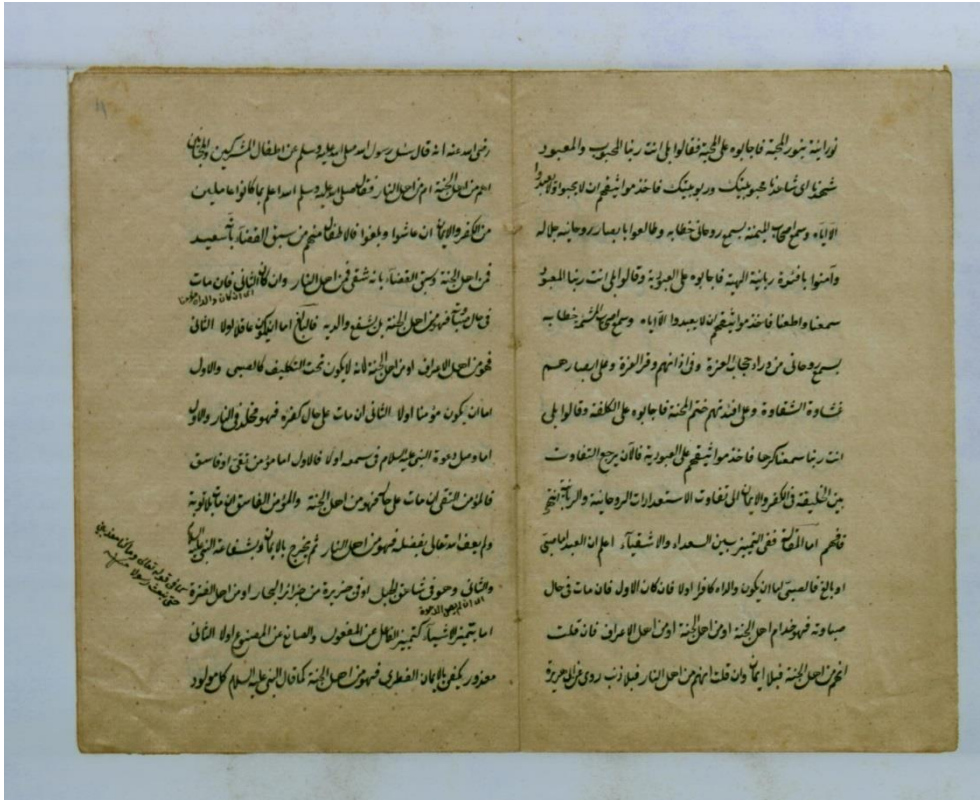 نورانية بنور المحبة فاجابوه على المحبة فقالوا بلى انت ربنا المحبوب والمعبود
شهدنا اى شاهدنا محبوبيتك وربوبيتك فاخذ مواثيقهم ان لا يحبوا ولا يعبدوا
الا اياه وسمع اصحاب الميمنة بسمع روحانى خطابه وطالعوا بابصار روحانية جلاله
وآمنوا بافئدة ربانية الهية فاجابوه على العبودية وقالوا بلى انت ربنا المعبود
سمعنا واطعنا فاخذ مواثيقهم ان لا يعبدوا الا اياه وسمع اصحاب المشئمة خطابه
بسمع روحانى من وراء حجاب العزة وفى اذانهم وقر العزة وعلى ابصارهم
غشاوة الشقاوة وعلى افئدتهم ختم المحنة فاجابوه على الكلفة وقالوا بلى
انت ربنا سمعنا كرها فاخذ مواثيقهم على العبودية فالآن يرجع التفاوت
بين الخليقة فى الكفر والايمان الى تفاوت الاستعدادات الروحانية والربانية انتهى
فافهم اما المقالة ففى التمييز بين السعداء والاشقياء اعلم ان العبد اما صبى
او بالغ فالصبى اما ان يكون والداه كافرا اولا فان كان الاول فان مات فى حال
صباوته فهو خدام اهل الجنة او من اهل الجنة او من اهل الاعراف فان قلت
انهم من اهل الجنة فبلا ايمان وان قلت انهم من اهل النار فبلا ذنب روى عن ابى هريرة
رضى الله عنه انه قال سئل رسول الله صلى الله عليه وسلم عن اطفال المشركين والمجانين
اهم من اهل الجنة ام من اهل النار فقال صلى الله عليه وسلم الله اعلم بما كانوا عاملين
من الكفر والايمان ان عاشوا وبلغوا فالاطفال منهم من سبق القضاء بانه سعيد
فمن اهل الجنة وسبق القضاء بانه شقى فمن اهل النار وان كان الثانى فان مات
اى ان كان والداه مؤمنا
فى حال صباوته فهو من اهل الجنة بل يشفع والديه فالبالغ اما ان يكون عاقلا اولا الثانى
فهو من اهل الاعراف او من اهل الجنة لانه لا يكون تحت التكليف كالصبى والاول
اما ان يكون مؤمنا اولا الثانى ان مات على حال كفره فهو مخلد فى النار والاول
اما وصل دعوة النبى عليه السلام فى سمعه اولا فالاول اما مؤمن تقى او فاسق
فالمؤمن التقى ان مات على حاله فهو من اهل الجنة والمؤمن الفاسق ان مات بلا توبة
ولم يعف الله تعالى بفضله فهو من اهل النار ثم يخرج بالايمان وبشفاعة النبى عليه السلام
والثانى وهو فى شاهق الجبل او فى جزيرة من جزائر البحار او من اهل الفترة
اى ان لم يصل الدعوة
اما يتميز الاشياء كتمييز الفاعل عن المفعول والصانع عن المصنوع اولا الثانى
معذور يكفى بالايمان الفطرى فهو من اهل الجنة كما قال النبى عليه السلام كل مولود
كما فى قوله تعالى وما كنا معذبين
حتى نبعث رسولا